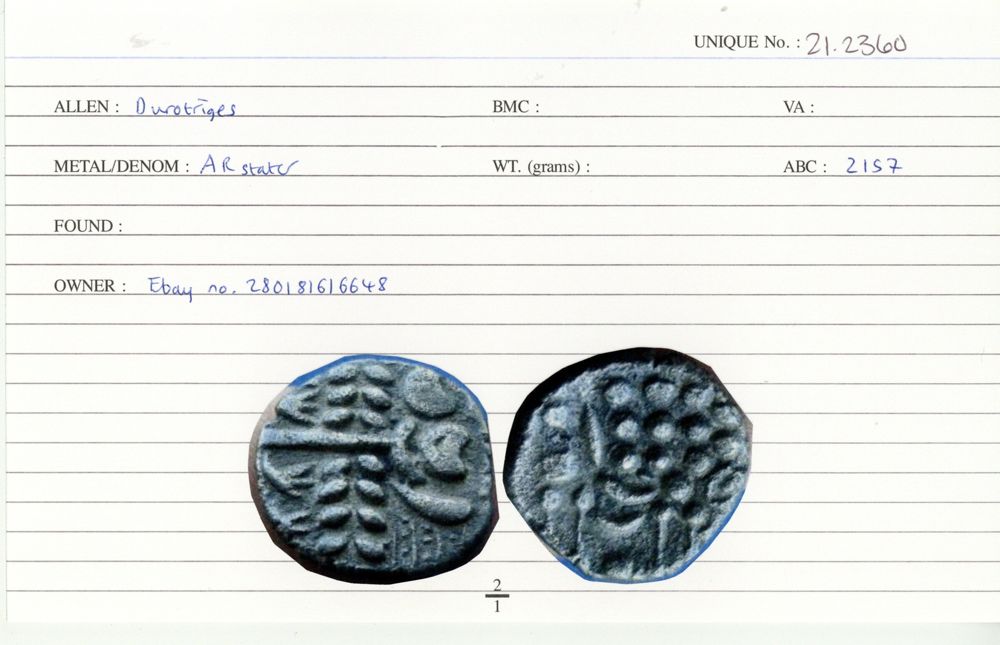 UNIQUE No. : 21.2360
ALLEN : Durotriges BMC : VA :
METAL/DENOM : AR stater WT. (grams) : ABC : 2157
FOUND :
OWNER : Ebay no. 280181616648
2
1